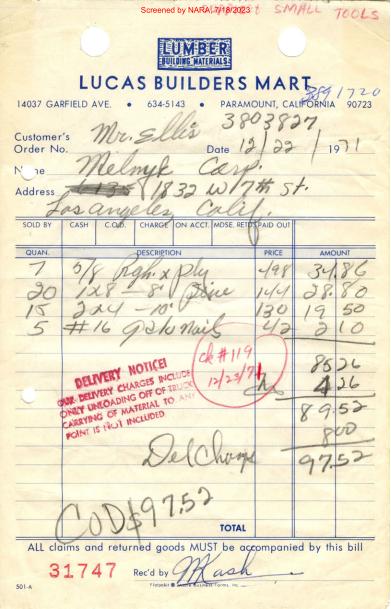 Screened by NARA, 7/18/2023
SMALL TOOLS
LUMBER
BUILDING MATERIALS
LUCAS BUILDERS MART
3891720
14037 GARFIELD AVE. • 634-5143 • PARAMOUNT, CALIFORNIA 90723
3803827
Customer's
Order No. Mr. Ellis Date 12/22/1971
Name Melnyk Corp.
Address 1832 W 7th St.
Los Angeles, Calif.
SOLD BY CASH C.O.D. CHARGE ON ACCT. MDSE. RETD. PAID OUT
QUAN. DESCRIPTION PRICE AMOUNT
7 5/8 Rgh x ply 498 34.86
20 1x8 - 8' Pine 144 28.80
15 2x4 - 10' 130 19 50
5 #16 Nails 42 2 10
ck #119
12/23/71
85 26
4 26
89.52
800
Del Charge 97.52
DELIVERY NOTICE!
OUR DELIVERY CHARGES INCLUDE
ONLY UNLOADING OFF OF TRUCK
CARRYING OF MATERIAL TO ANY
POINT IS NOT INCLUDED
COD $97.52
TOTAL
ALL claims and returned goods MUST be accompanied by this bill
31747 Rec'd by
501-A